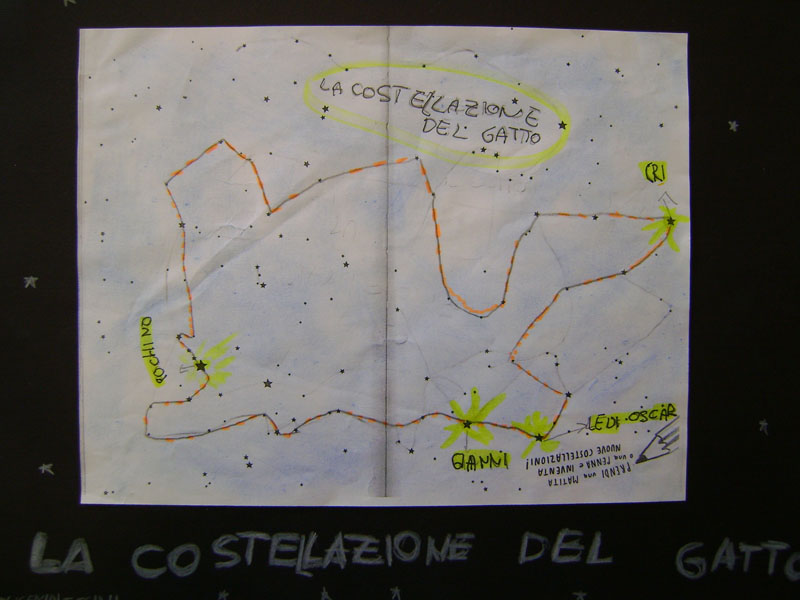 LA COSTELLAZIONE
DEL GATTO
CRI
OCCHINO
LEDI-OSCAR
GIANNI
PRENDI una MATITA
o una PENNA e INVENTA
NUOVE COSTELLAZIONI!
LA COSTELLAZIONE DEL GATTO